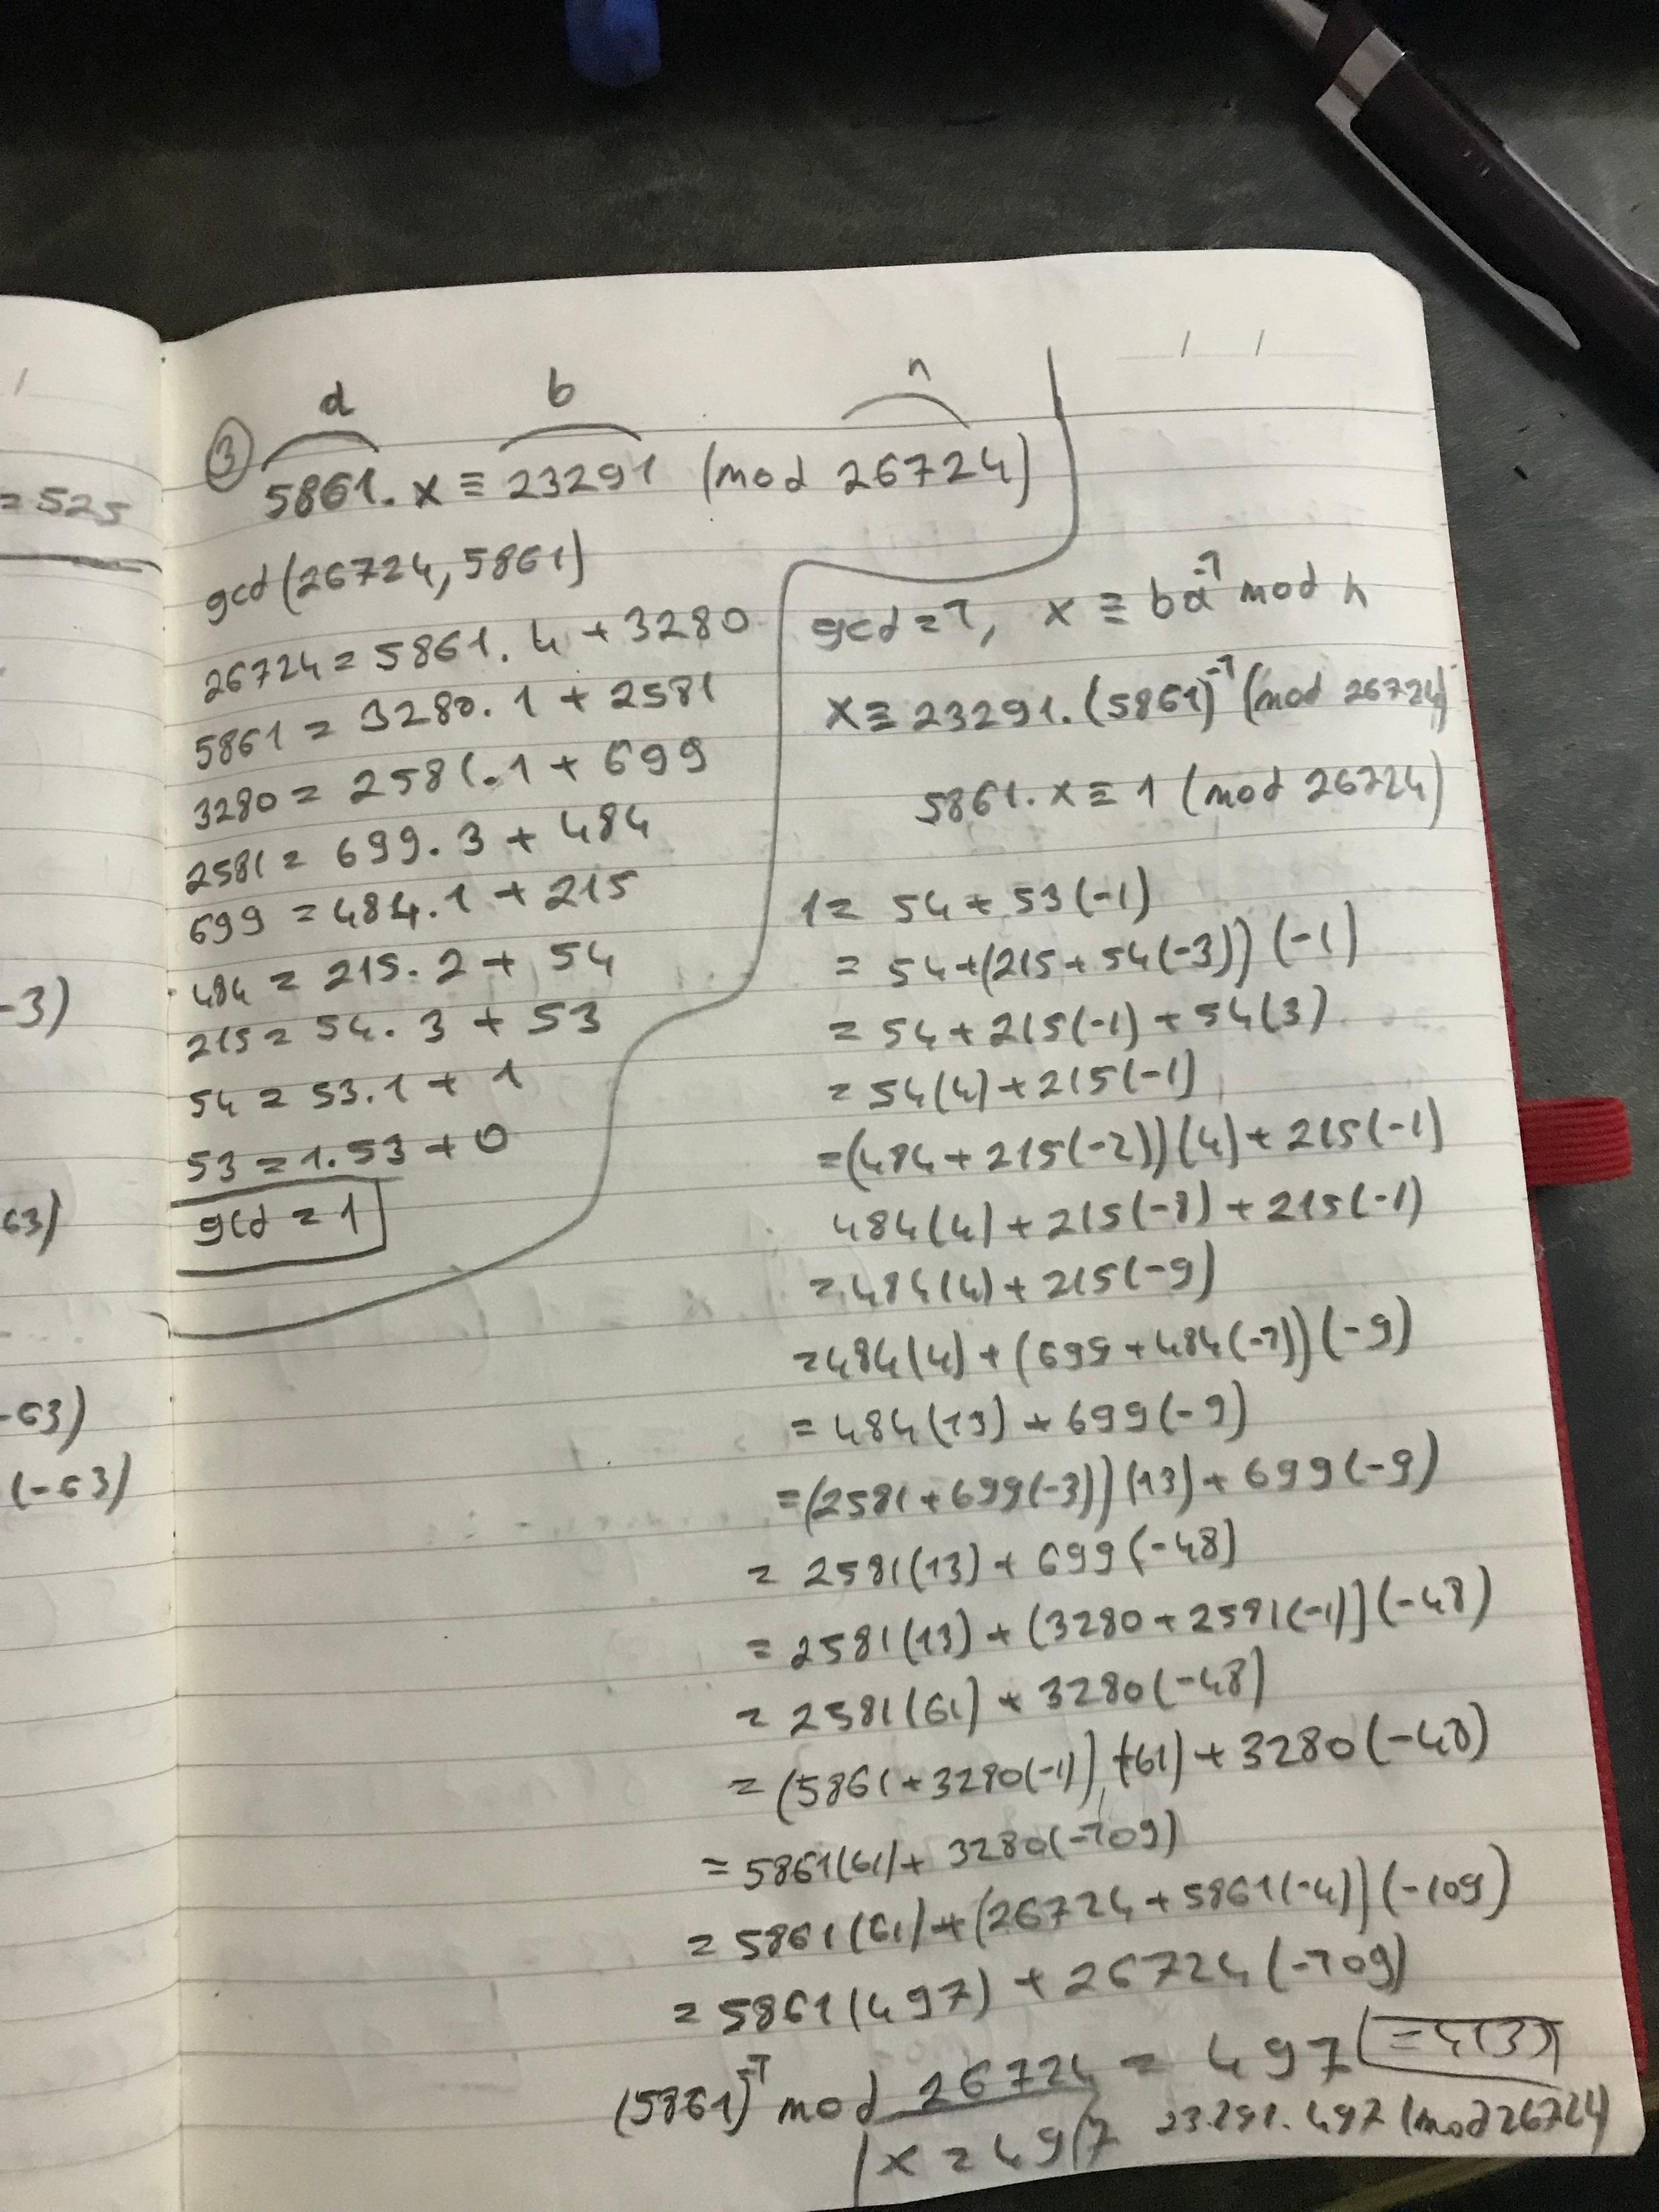 /
= 525
-3)
63)
-63)
(-63)
/ /
a b n
③ 5861. x ≡ 23291 (mod 26724)
gcd(26724, 5861)
26724 = 5861. 4 + 3280
5861 = 3280. 1 + 2581
3280 = 2581. 1 + 699
2581 = 699. 3 + 484
699 = 484. 1 + 215
484 = 215. 2 + 54
215 = 54. 3 + 53
54 = 53. 1 + 1
53 = 1. 53 + 0
gcd = 1
gcd = 1, x ≡ ba⁻¹ mod n
x ≡ 23291. (5861)⁻¹ (mod 26724)
5861. x ≡ 1 (mod 26724)
1 = 54 + 53(-1)
= 54 + (215 + 54(-3)) (-1)
= 54 + 215(-1) + 54(3)
= 54(4) + 215(-1)
= (484 + 215(-2)) (4) + 215(-1)
484(4) + 215(-8) + 215(-1)
= 484(4) + 215(-9)
= 484(4) + (699 + 484(-1)) (-9)
= 484(13) + 699(-9)
= (2581 + 699(-3)) (13) + 699(-9)
= 2581(13) + 699(-48)
= 2581(13) + (3280 + 2581(-1)) (-48)
= 2581(61) + 3280(-48)
= (5861 + 3280(-1)) (61) + 3280(-48)
= 5861(61) + 3280(-109)
= 5861(61) + (26724 + 5861(-4)) (-109)
= 5861(497) + 26724(-109)
(5861)⁻¹ mod 26724 = 497
x = 497 23291. 497 (mod 26724)